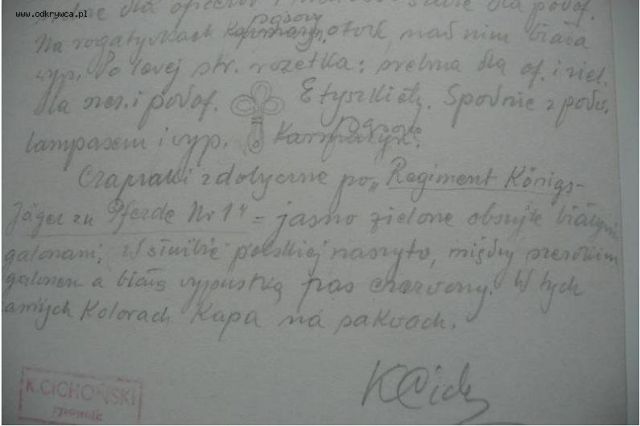 www.odkrywca.pl
dla oficerów i dla podof.
pąsowy
Na rogatywkach Karmazyn. otok, nad nim biała
wyp. Po lewej str. rozetka: srebrna dla of. i ziel.
dla szer. i podof. Etyszkiety. Spodnie z podw.
lampasem i wyp. pąsowe Karmazyn.
Czapraki zdobyczne po „Regiment Königs-
Jäger zu Pferde Nr 1" = jasno zielone obszyte białymi
galonami; W służbie polskiej naszyto, między szerokim
galonem a białą wypustką pas czerwony. W tych
samych Kolorach Kapa na pakach.
K. CICHOŃSKI